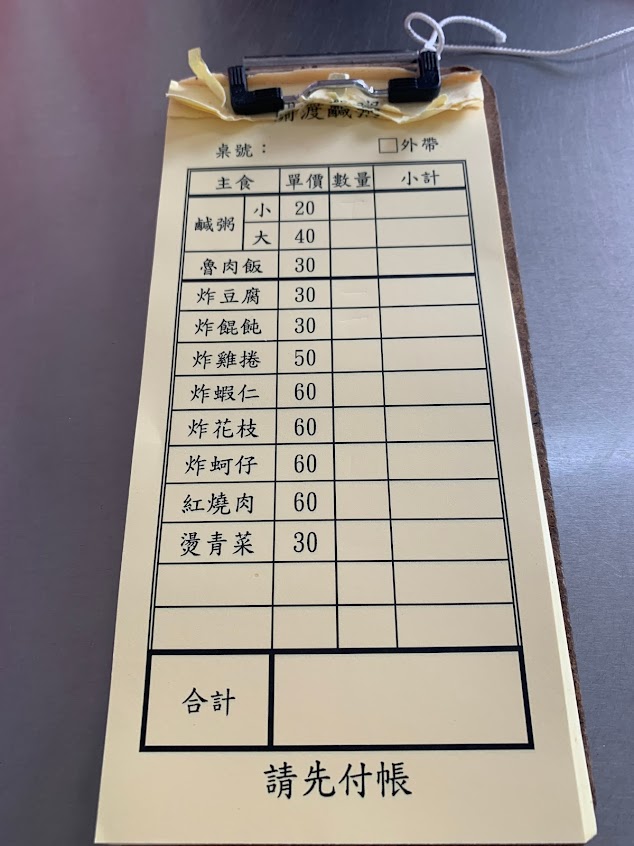 關渡鹹粥
桌號： □外帶
主食 單價 數量 小計
鹹粥 小 20
大 40
魯肉飯 30
炸豆腐 30
炸餛飩 30
炸雞捲 50
炸蝦仁 60
炸花枝 60
炸蚵仔 60
紅燒肉 60
燙青菜 30
合計
請先付帳